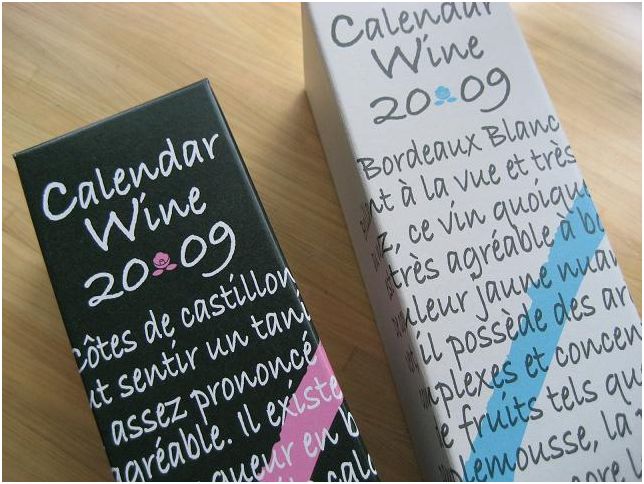 Calendar
Wine
2009
Côtes de castillon
ut sentir un tani
assez prononcé
agréable. Il existe
queur en b
Calendar
Wine
2009
Bordeaux Blanc
nt à la vue et très
z, ce vin quoique
très agréable à b
uleur jaune nuan
il possède des ar
mplexes et concen
e fruits tels qu
plemousse, la